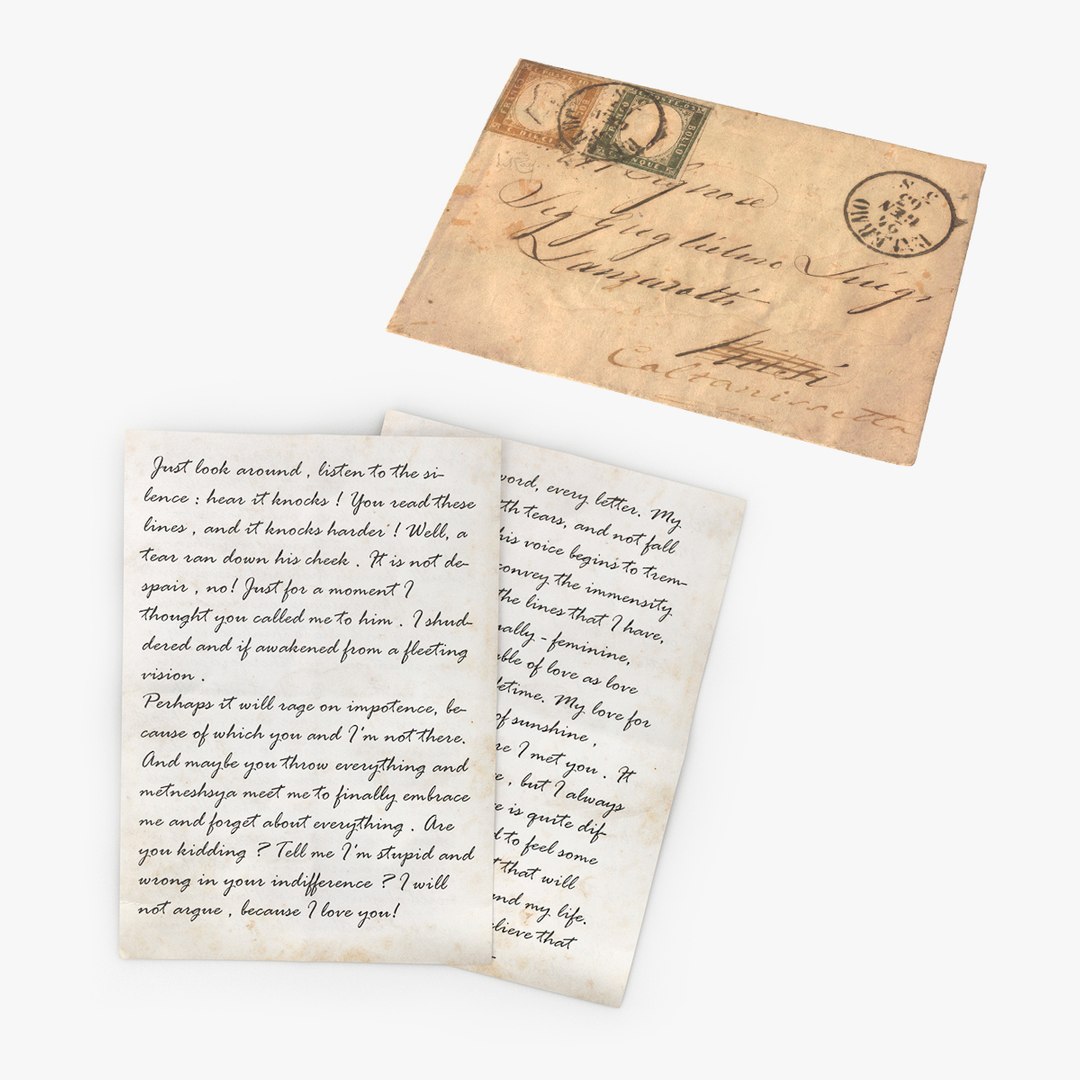 FRANCO
BOLLO
FRANCO
PALERMO
Sig Guglielmo Luigi
Lanzarotti
Caltanissetta
Just look around , listen to the si-
lence : hear it knocks ! You read these
lines , and it knocks harder ! Well, a
tear ran down his cheek . It is not de-
spair , no! Just for a moment I
thought you called me to him . I shud-
dered and if awakened from a fleeting
vision .
Perhaps it will rage on impotence, be-
cause of which you and I'm not there.
And maybe you throw everything and
metneshsya meet me to finally embrace
me and forget about everything . Are
you kidding ? Tell me I'm stupid and
wrong in your indifference ? I will
not argue , because I love you!
word, every letter. My
th tears, and not fall
his voice begins to trem-
convey the immensity
the lines that I have,
nally - feminine,
ble of love as love
fetime. My love for
of sunshine ,
re I met you . It
e , but I always
e is quite dif
d to feel some
that will
and my life.
lieve that